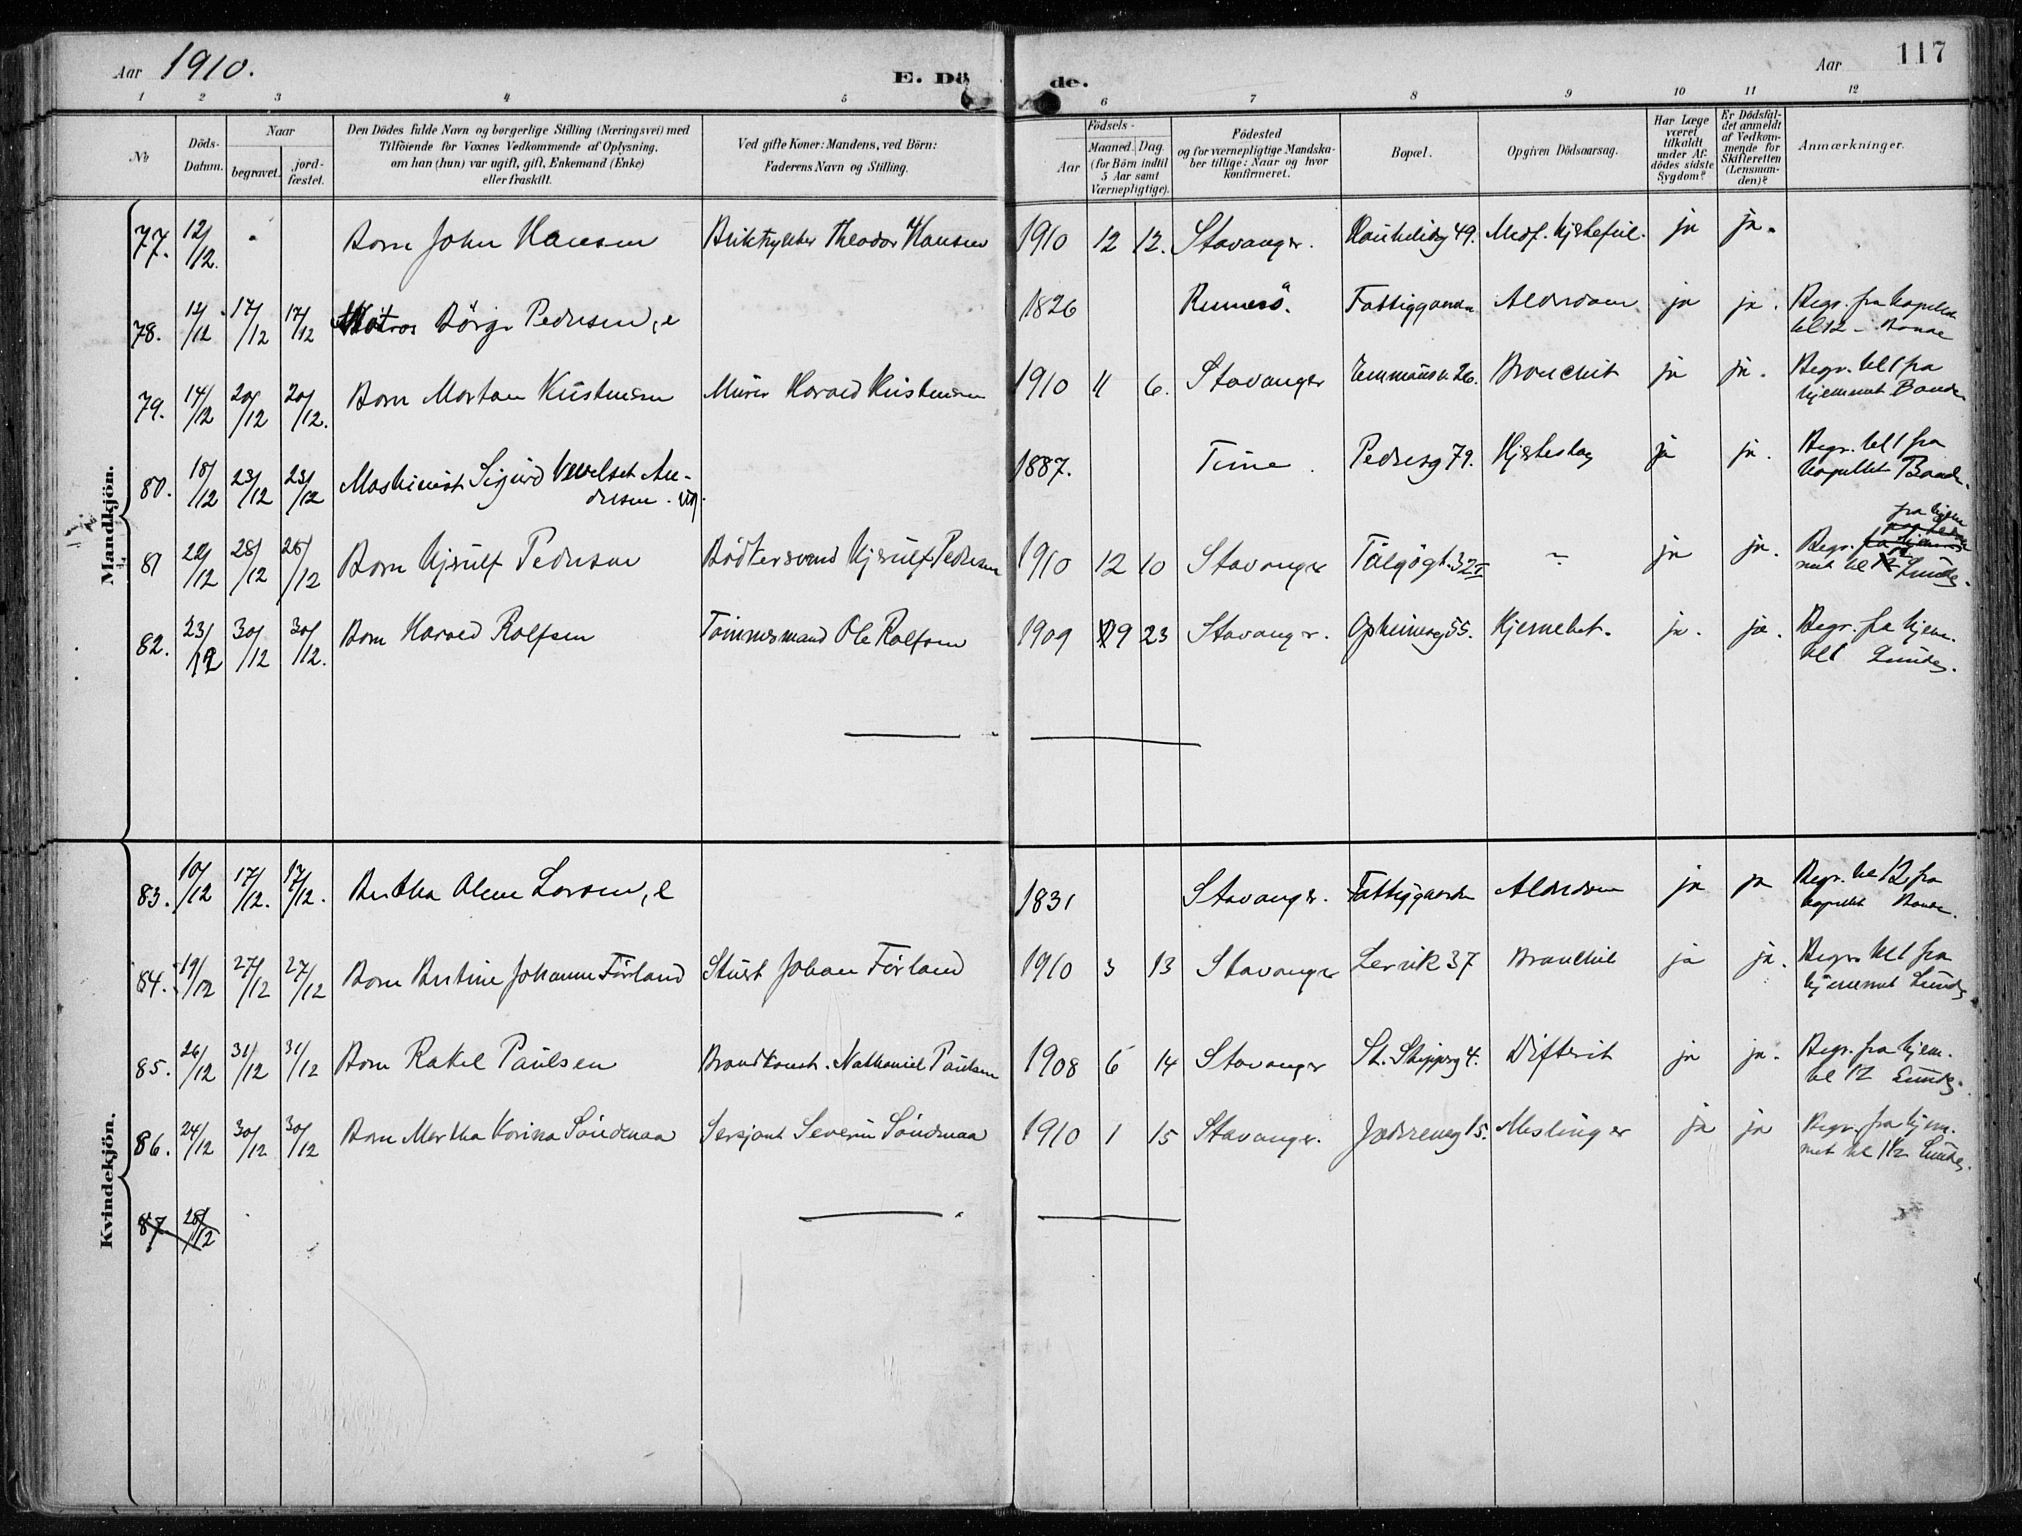 Aar 1910.
E. Dö de.
Aar
117
1 2 3 4 5 6 7 8 9 10 11 12
No
Döds-
Datum.
Naar
begravet.
jord-
fæstet.
Den Dödes fulde Navn og borgerlige Stilling (Næringsvei) med
Tilföiende for Voxnes Vedkommende af Oplysning,
om han (hun) var ugift, gift, Enkemand (Enke)
eller fraskilt.
Ved gifte Koner: Mandens, ved Börn:
Faderens Navn og Stilling.
Födsels-
Aar
Maaned.
Dag.
(for Börn indtil
5 Aar samt
Værnepligtige).
Födested
og for værnepligtige Mandska-
ber tillige: Naar og hvor
Konfirmeret.
Bopæl.
Opgiven Dödsaarsag.
Har Læge
været
tilkaldt
under Af-
dödes sidste
Sygdom?
Er Dödsfal-
det anmeldt
af Vedkom-
mende for
Skifteretten
(Lensman-
den)?
Anmærkninger.
Mandkjön.
77. 12/12. Barn John Hansen Theodor Hansen 1910 12 12. Stavanger. 49. ja ja.
78. 12/12 17/12 17/12 Börge Pedersen, e 1826 Fattiggaarden Alderdom ja ja. Begr. fra kapellet
kl 12 - Bonde
79. 14/12 20/12 20/12. Barn Morton Kristensen Murer Harald Kristensen 1910 11 6. Stavanger Emmausv. 26. Bronchit ja ja. Begr. kl 1 fra
hjemmet Bonde
80. 18/12 23/12 23/12 Maskinist Sigurd An-
dresen. ug. 1887. Time. Pedersg 79. Hjerteslag ja ja. Begr. kl 1 fra
kapellet Bonde.
81 22/12 28/12 28/12 Barn Kjrulf Pedersen Bödkersvend Kjrulf Pedersen 1910 12 10 Stavanger 32 I ~ ja ja. Begr. fra hjem
met kl 12 Lunde.
82. 23/12 30/12 30/12. Barn Harald Rolfsen Tömmermand Ole Rolfsen 1909 9 23 Stavanger. Opheimsg 55. Hjernebet. ja. ja. Begr. fra hjem.
kl 1 Lunde.
Kvindekjön.
83. 10/12 17/12. 17/12. Bertha Olene Larsen, e 1831 Stavanger. Fattiggaarden Alderdom ja ja Begr. kl 12 fra
kapellet Bonde.
84. 19/12 27/12 27/12 Barn Bertine Johanne Förland Johan Förland 1910 3 13 Stavanger Lervik 37 Bronchit ja ja. Begr. kl 1 fra
hjemmet Lunde
85. 26/12 31/12 31/12 Barn Rakel Paulsen Brandkonst. Nathaniel Paulsen 1908 6 14 Stavanger St. Skipperg 4. Difterit ja ja. Begr. fra hjem.
kl 12 Lunde.
86. 24/12 30/12 30/12 Barn Mertha Korina Söndenaa Sersjant Severin Söndenaa 1910 1 15 Stavanger. Jædrenvg 15. Meslinger ja ja Begr. fra hjem-
met kl 12 Lunde.
87 28/12